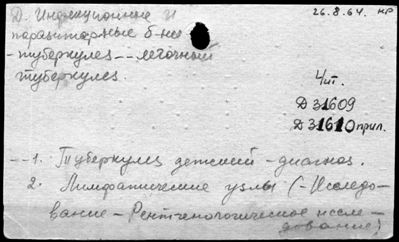 Д. Инфекционные и
26.8.64. кр
паразитарные б-ни
-туберкулез -- легочный
туберкулез
Чит.
Д 31609
Д 31610 прил.
--1. Туберкулез детский - диагноз.
2. Лимфатические узлы (-Исследо-
вание - Рентгенологическое иссле-
дование)